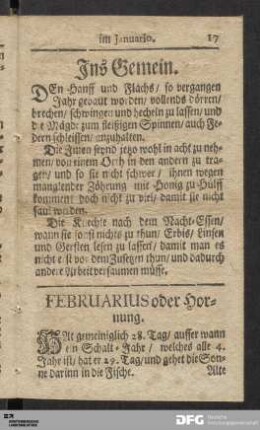 im Januario. 17
Ins Gemein.
DEn Hanff und Flachs/ so vergangen
Jahr gebaut worden/ vollends dörren/
brechen/ schwingen und hecheln zu lassen/ und
die Mägde zum fleißigen Spinnen/ auch Fe-
dern schleissen/ anzuhalten.
Die Immen seynd jetzo wohl in acht zu neh-
men/ von einem Orth in den andern zu tra-
gen/ und so sie nicht schwer/ ihnen wegen
manglender Zöhrung mit Honig zu Hülff
kommen/ doch nicht zu viel/ damit sie nicht
faul werden.
Die Knechte nach dem Nacht-Essen/
wann sie sonst nichts zu thun/ Erbis/ Linsen
und Gersten lesen zu lassen/ damit man es
nicht erst vor dem Zusetzen thun/ und dadurch
andere Arbeit versaumen müsse.
FEBRUARIUS oder Hor-
nung.
HAt gemeiniglich 28. Tag/ ausser wann
ein Schalt-Jahr/ welches alle 4.
Jahr ist/ hat er 29. Tag/ und gehet die Son-
ne darinn in die Fische. Alte
DFG